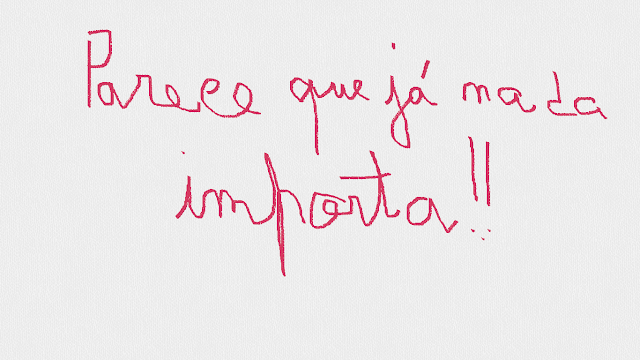 Parece que já nada
importa!!